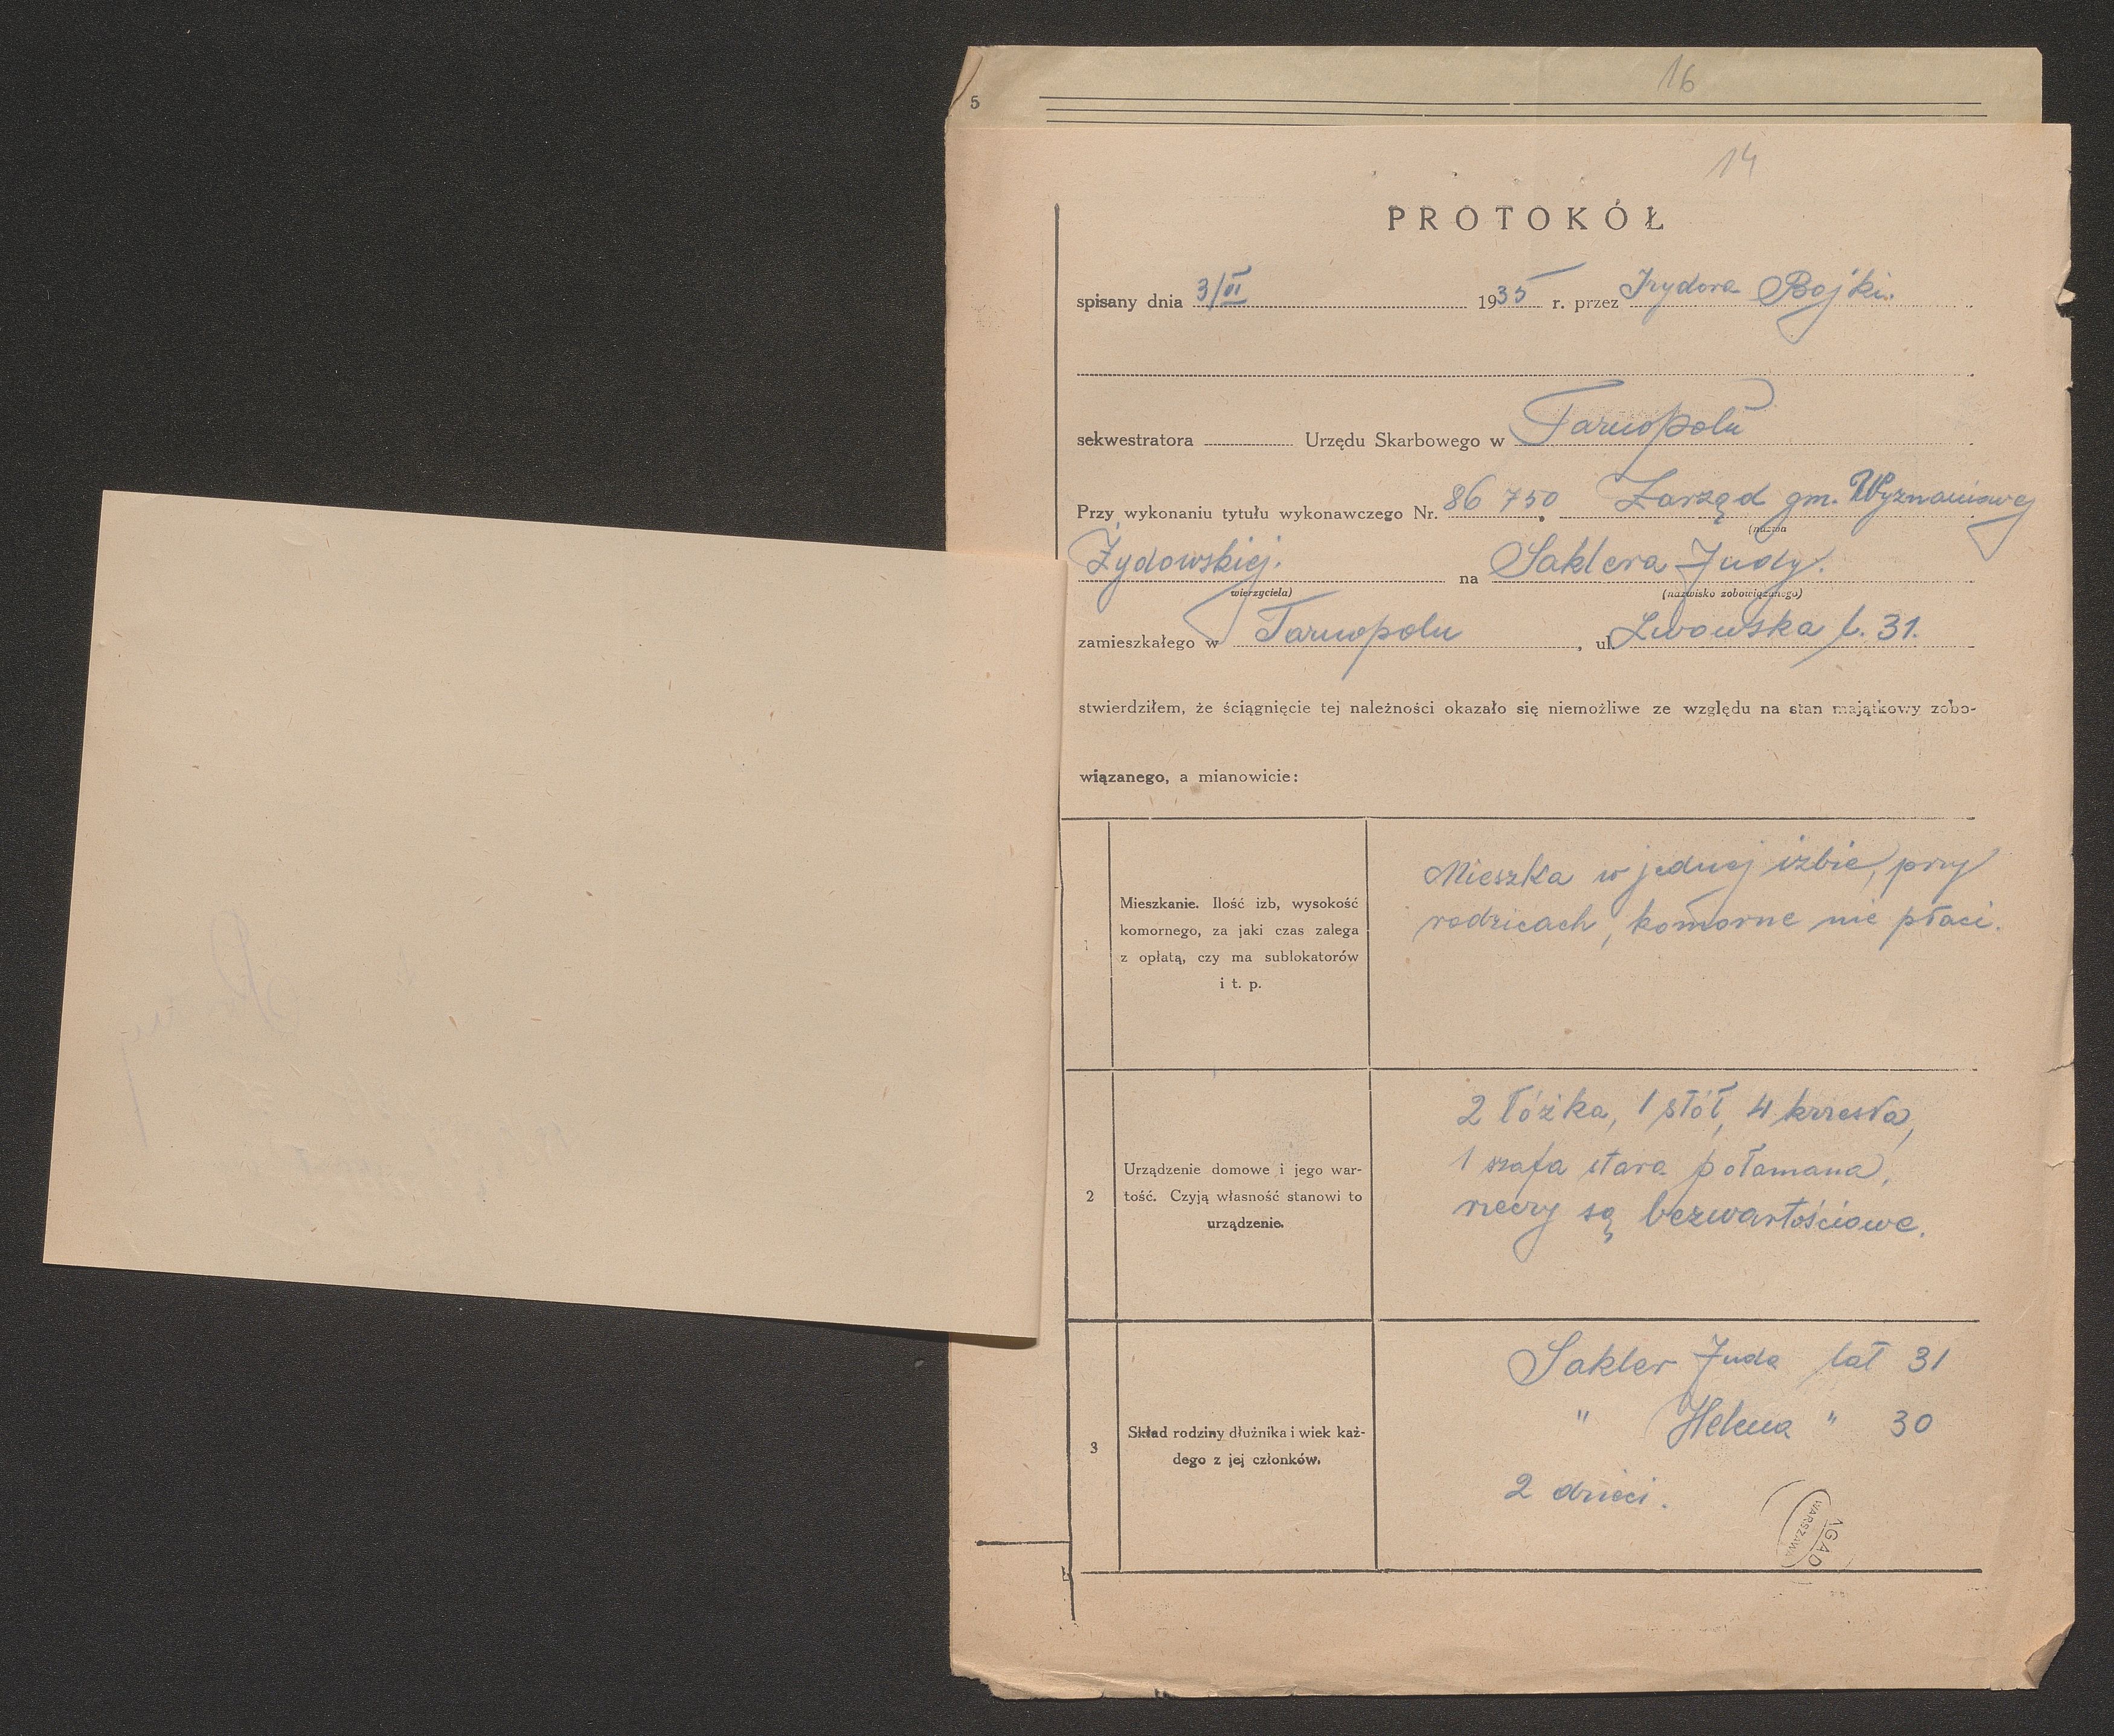 16
5
14
PROTOKÓŁ
spisany dnia 3/VI 1935 r. przez Izydora Bojki.
sekwestratora Urzędu Skarbowego w Tarnopolu
Przy wykonaniu tytułu wykonawczego Nr. 86 750 Zarząd gm. Wyznaniowej
(nazwa
Żydowskiej. na Saklera Judy.
wierzyciela) (nazwisko zobowiązanego)
zamieszkałego w Tarnopolu, ul. Lwowska l. 31.
stwierdziłem, że ściągnięcie tej należności okazało się niemożliwe ze względu na stan majątkowy zobo-
wiązanego, a mianowicie:
1
Mieszkanie. Ilość izb, wysokość
komornego, za jaki czas zalega
z opłatą, czy ma sublokatorów
i t. p.
Mieszka w jednej izbie, przy
rodzicach, komorne nie płaci.
2
Urządzenie domowe i jego war-
tość. Czyją własność stanowi to
urządzenie.
2 łóżka, 1 stół, 4 krzesła,
1 szafa stara połamana,
rzeczy są bezwartościowe.
3
Skład rodziny dłużnika i wiek każ-
dego z jej członków.
Sakler Juda lat 31
" Helena " 30
2 dzieci.
AGAD
WARSZAWA